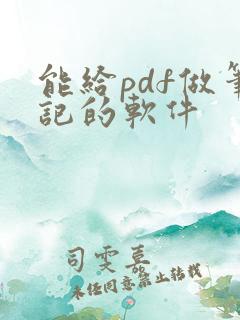 能給pdf做筆
記的軟件
司雯嘉
未经同意禁止转载